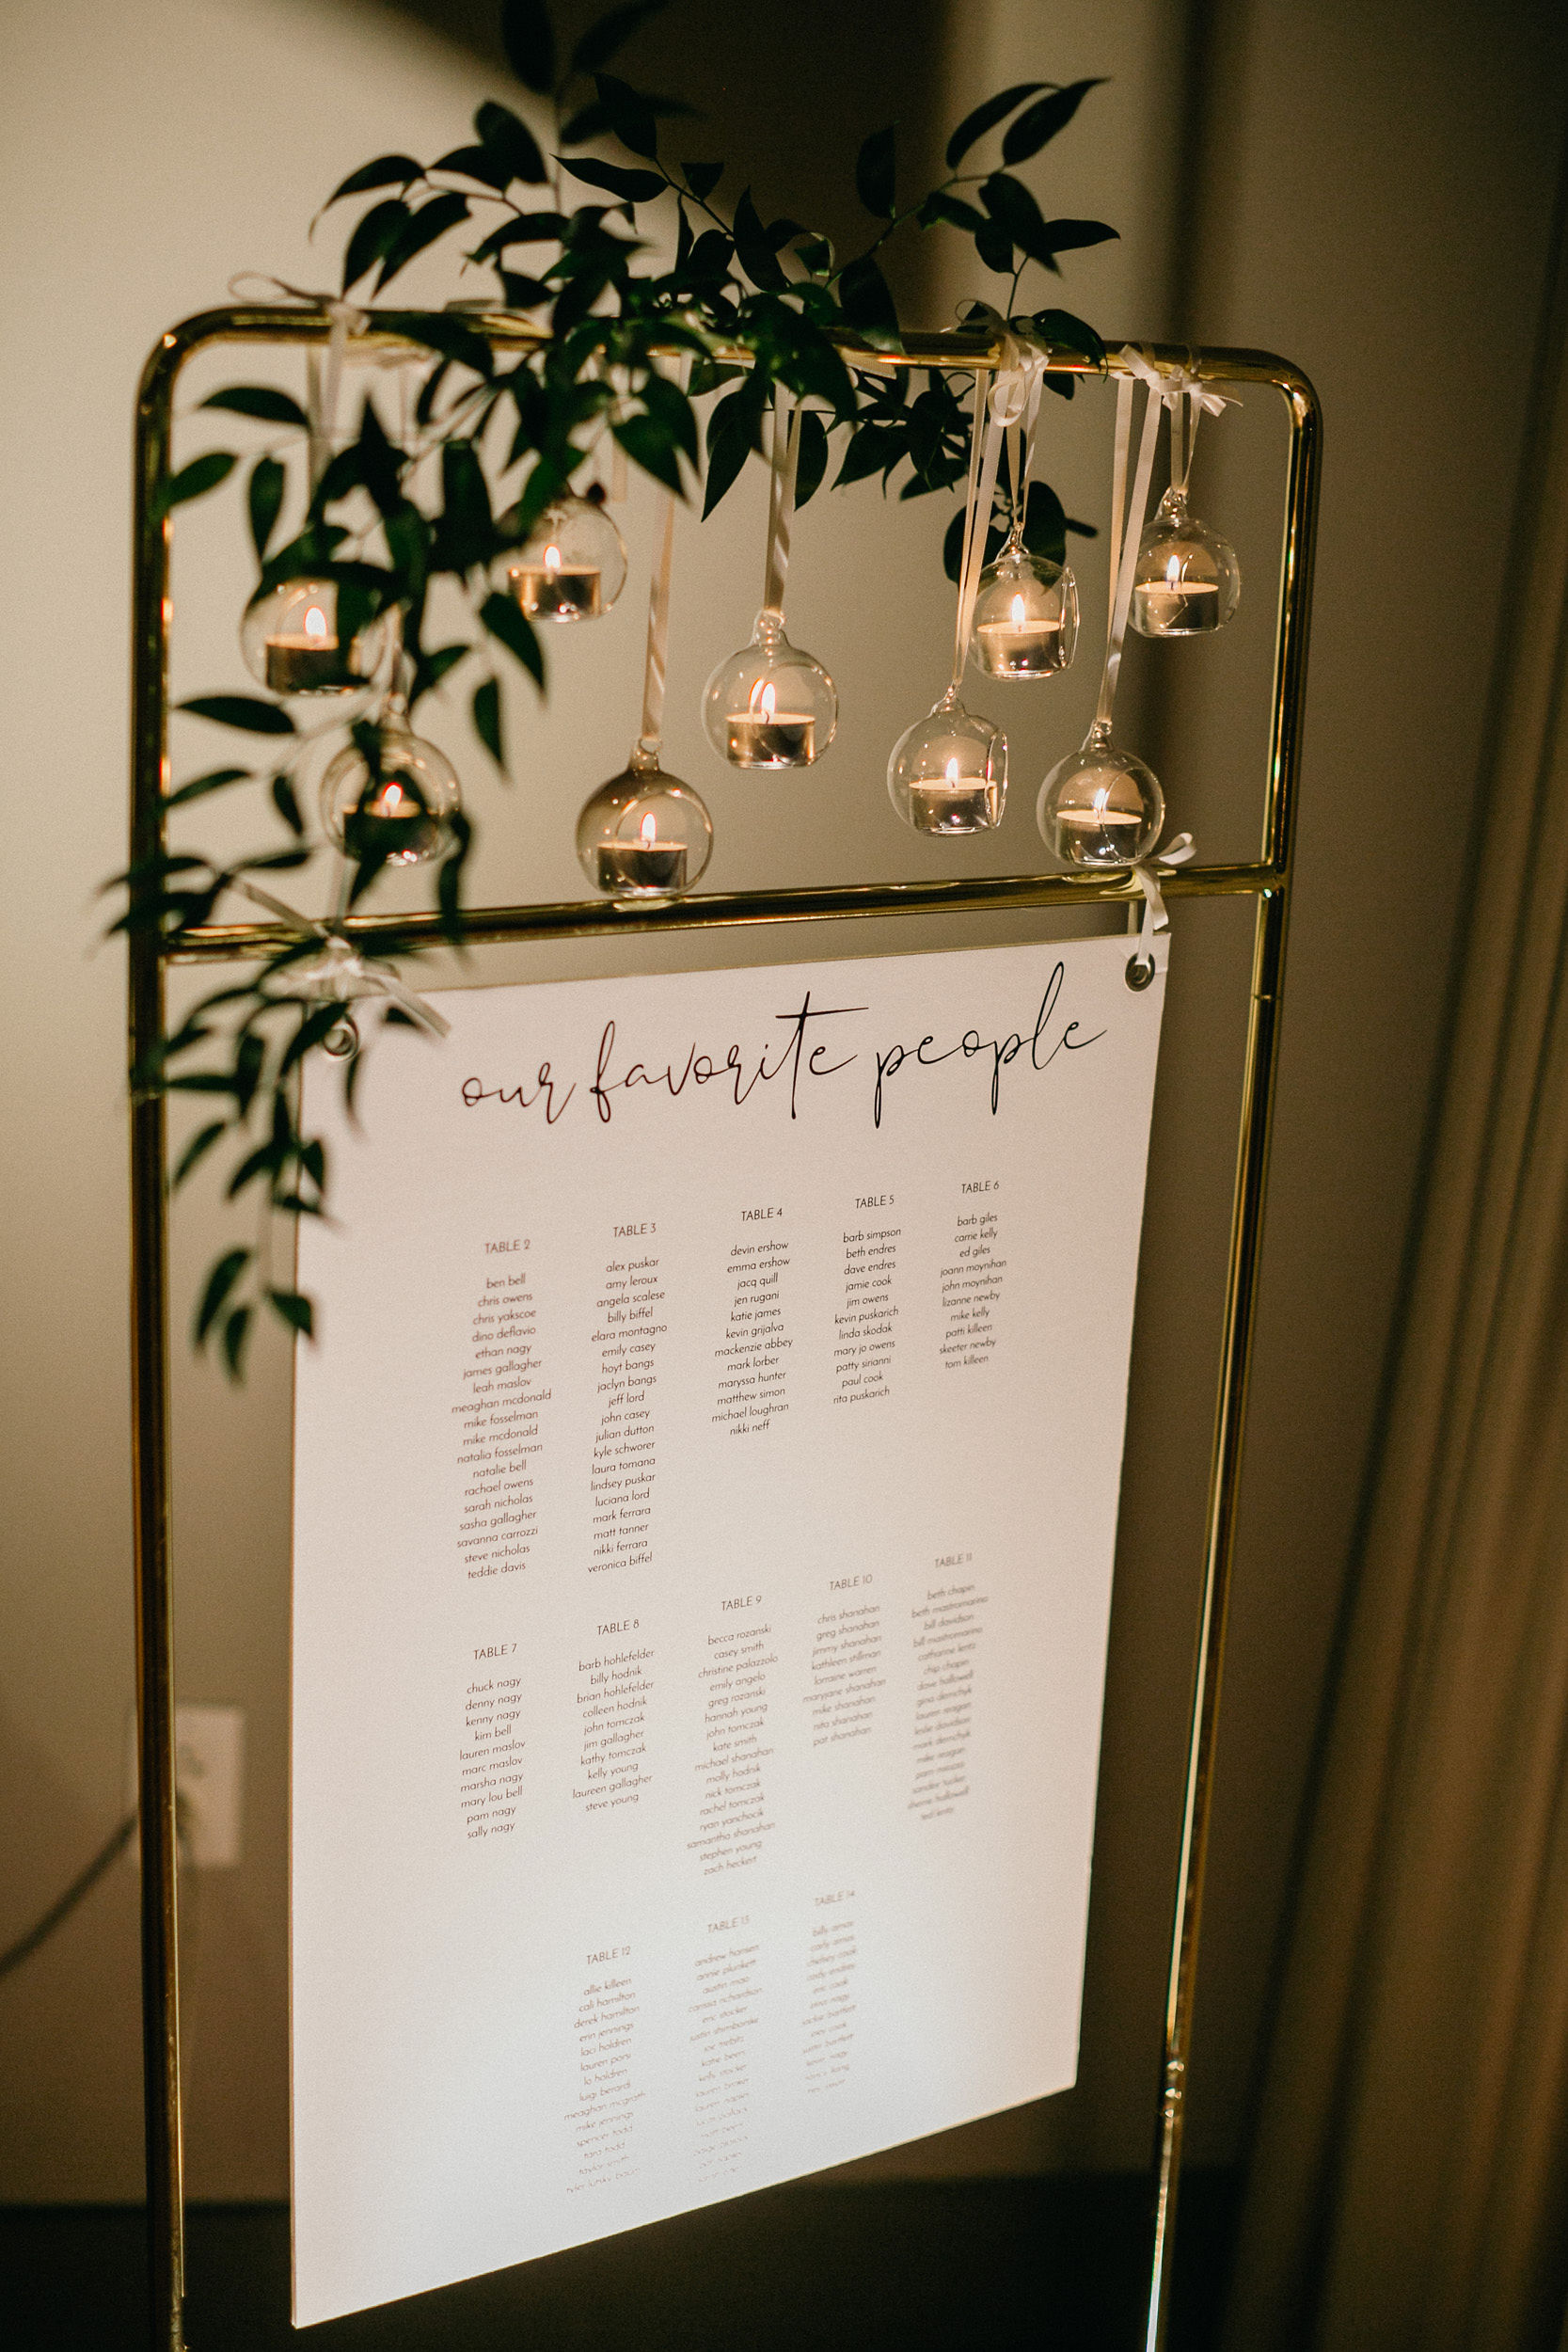 our favorite people
TABLE 2
ben bell
chris owens
chris yakscoe
dino deflavio
ethan nagy
james gallagher
leah maslov
meaghan mcdonald
mike fosselman
mike mcdonald
natalia fosselman
natalie bell
rachael owens
sarah nicholas
sasha gallagher
savanna carrozzi
steve nicholas
teddie davis
TABLE 3
alex puskar
amy leroux
angela scalese
billy biffel
elara montagno
emily casey
hoyt bangs
jaclyn bangs
jeff lord
john casey
julian dutton
kyle schworer
laura tomana
lindsey puskar
luciana lord
mark ferrara
matt tanner
nikki ferrara
veronica biffel
TABLE 4
devin ershow
emma ershow
jacq quill
jen rugani
katie james
kevin grijalva
mackenzie abbey
mark lorber
maryssa hunter
matthew simon
michael loughran
nikki neff
TABLE 5
barb simpson
beth endres
dave endres
jamie cook
jim owens
kevin puskarich
linda skodak
mary jo owens
patty sirianni
paul cook
rita puskarich
TABLE 6
barb giles
carrie kelly
ed giles
joann moynihan
john moynihan
lizanne newby
mike kelly
patti killeen
skeeter newby
tom killeen
TABLE 7
chuck nagy
denny nagy
kenny nagy
kim bell
lauren maslov
marc maslov
marsha nagy
mary lou bell
pam nagy
sally nagy
TABLE 8
barb hohlefelder
billy hodnik
brian hohlefelder
colleen hodnik
john tomczak
jim gallagher
kathy tomczak
kelly young
laureen gallagher
steve young
TABLE 9
becca rozanski
casey smith
christine palazzolo
emily angelo
greg rozanski
hannah young
john tomczak
kate smith
michael shanahan
molly hodnik
nick tomczak
rachel tomczak
ryan yanchocik
samantha shanahan
stephen young
zach heckert
TABLE 10
chris shanahan
greg shanahan
jimmy shanahan
kathleen stillman
lorraine warren
maryjane shanahan
mike shanahan
nita shanahan
pat shanahan
TABLE 11
beth chapin
beth mastromarino
bill davidson
bill mastromarino
catharine lentz
chip chapin
dave hallowell
gina demchyk
lauren reagan
leslie davidson
mark demchyk
mike reagan
sherrie hallowell
ted lentz
TABLE 12
allie killeen
cali hamilton
derek hamilton
erin jennings
laci holdren
lauren
lo holdren
luigi berardi
meaghan mcgrath
mike jennings
spencer todd
tara todd
TABLE 13
andrew hansen
annie plunkett
austin mao
carissa richardson
eric stocker
TABLE 14
billy amos
carly amos
chelsey cook
cody endres
eric cook